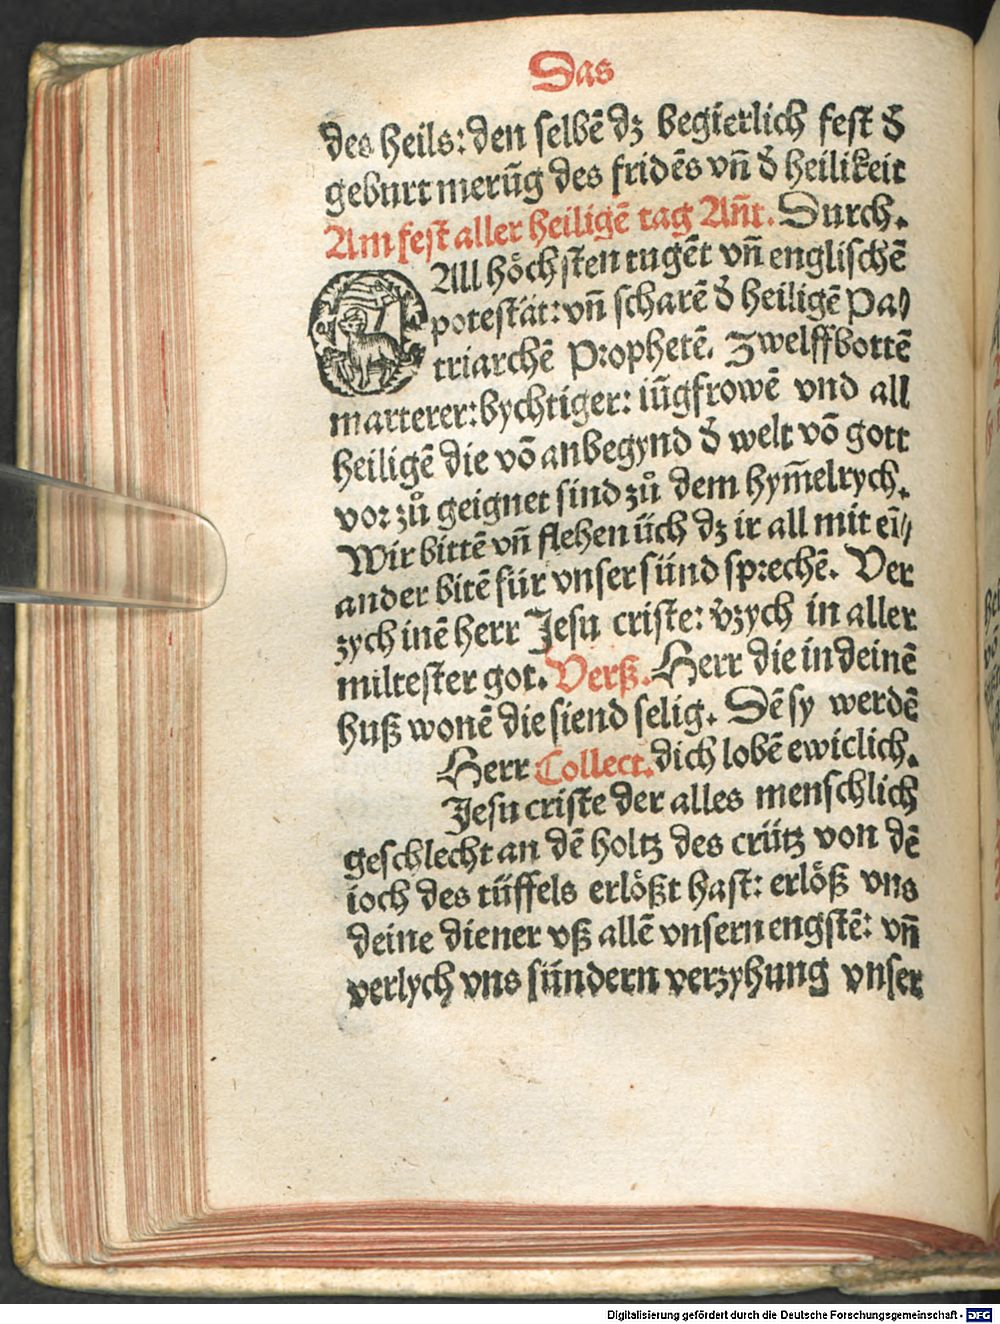 Das
des heils: den selbē dz begierlich fest d̄
geburt merūg des fridēs vn̄ d̄ heilikeit
Am fest aller heiligē tag An̄t. Durch.
O All hoͤchsten tugēt vn̄ englischē
potestāt: vn̄ scharē d̄ heiligē Pa⸗
triarchē Prophetē. Zwelffbottē
marterer: bychtiger: iūgfrowē vnd all
heiligē die vō anbegynd d̄ welt vō gott
vor zů geignet sind zů dem hym̄elrych.
Wir bittē vn̄ flehen üch dz ir all mit eī⸗
ander bitē für vnser sünd sprechē. Ver
zych inē herr Jesu criste: v̄zych in aller
miltester got. Verß. Herr die in deinē
huß wonē die siend selig. Dē sy werdē
Herr Collect. dich lobē ewiclich.
Jesu criste der alles menschlich
geschlecht an dē holtz des crütz von dē
ioch des tüffels erlößt hast: erlöß vns
deine diener vß allē vnsern engstē: vn̄
verlych vns sündern verzyhung vnser
Digitalisierung gefördert durch die Deutsche Forschungsgemeinschaft - DFG